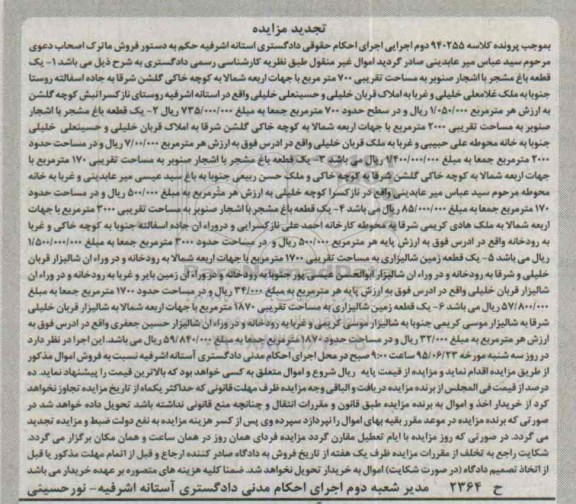 تجدید مزایده
بموجب پرونده کلاسه ۹۴۰۲۵۵ دوم اجرایی اجرای احکام حقوقی دادگستری آستانه اشرفیه حکم به دستور فروش ماترک اصحاب دعوی
مرحوم سید عباس میر عابدینی صادر گردید اموال غیر منقول طبق نظریه کارشناسی رسمی دادگستری به شرح ذیل می باشد ۱- یک
قطعه باغ مشجر با اشجار صنوبر به مساحت تقریبی ۷۰۰ متر مربع با جهات اربعه شمالا به کوچه خاکی گلشن شرقا به جاده اسفالته روستا
جنوبا به ملک غلامعلی خلیلی و غربا به املاک قربان خلیلی و حسینعلی خلیلی واقع در آستانه اشرفیه روستای نازکسرانبش کوچه گلشن
به ارزش هر مترمربع ۱/۰۵۰/۰۰۰ ریال و در سطح حدود ۷۰۰ مترمربع جمعا به مبلغ ۷۳۵/۰۰۰/۰۰۰ ریال ۲- یک قطعه باغ مشجر با اشجار
صنوبر به مساحت تقریبی ۲۰۰۰ مترمربع با جهات اربعه شمالا به کوچه خاکی گلشن شرقا به املاک قربان خلیلی و حسینعلی خلیلی
جنوبا به خانه محوطه علی حبیبی و غربا به ملک قربان خلیلی واقع در آدرس فوق به ارزش هر مترمربع ۷/۰۰/۰۰۰ ریال و در مساحت حدود
۲۰۰۰ مترمربع جمعا به مبلغ ۱/۴۰۰/۰۰۰/۰۰۰ ریال می باشد ۳- یک قطعه باغ مشجر با اشجار صنوبر به مساحت تقریبی ۱۷۰ مترمربع با
جهات اربعه شمالا به کوچه خاکی گلشن شرقا به کوچه خاکی و ملک حسن ربیعی جنوبا به باغ سید عیسی میر عابدینی و غربا به خانه
محوطه مرحوم سید عباس میر عابدینی واقع در نازکسرا کوچه خلیلی به ارزش هر مترمربع به مبلغ ۵۰۰/۰۰۰ ریال و در مساحت حدود
۱۷۰ مترمربع جمعا به مبلغ ۸۵/۰۰۰/۰۰۰ ریال می باشد ۴- یک قطعه باغ مشجر با اشجار صنوبر به مساحت تقریبی ۳۰۰۰ مترمربع با جهات
اربعه شمالا به ملک هادی کریمی شرقا به محوطه کارخانه احمد علی نازکسرایی و درورا ان جاده اسفالته جنوبا به کوچه خاکی و غربا
به رودخانه واقع در آدرس فوق به ارزش پایه هر مترمربع ۵۰۰/۰۰۰ ریال و در مساحت حدود ۳۰۰۰ مترمربع جمعا به مبلغ ۱/۵۰۰/۰۰۰/۰۰۰
ریال می باشد ۵- یک قطعه زمین شالیزاری به مساحت تقریبی ۱۷۰۰ مترمربع با جهات اربعه شمالا به رودخانه و در وراء ان شالیزار قربان
خلیلی و شرقا به رودخانه و در وراء ان شالیزار ابوالحسن حسن پور جنوبا به رودخانه و در وراء ان زمین بایر و غربا به رودخانه و در وراء ان
شالیزار قربان خلیلی واقع در آدرس فوق به ارزش پایه هر مترمربع به مبلغ ۳۴/۰۰۰ ریال و در مساحت حدود ۱۷۰۰ مترمربع جمعا به مبلغ
۵۷/۸۰۰/۰۰۰ ریال می باشد ۶- یک قطعه زمین شالیزاری به مساحت تقریبی ۱۸۷۰ مترمربع با جهات اربعه شمالا به شالیزار قربان خلیلی
شرقا به شالیزار موسی کریمی جنوبا به شالیزار موسی کریمی و غربا به رودخانه و در وراء ان شالیزار حسین جعفری واقع در آدرس فوق به
ارزش هر مترمربع به مبلغ ۳۲/۰۰۰ ریال و در مساحت حدود ۱۸۷۰ مترمربع جمعا به مبلغ ۵۹/۸۴۰/۰۰۰ ریال می باشد. این اجرا در نظر دارد
در روز سه شنبه مورخه ۹۵/۰۶/۲۳ ساعت ۹:۰۰ صبح در محل اجرای احکام مدنی دادگستری آستانه اشرفیه نسبت به فروش اموال مذکور
از طریق مزایده اقدام نماید و مزایده از قیمت پایه ریال شروع و اموال متعلق به کسی خواهد بود که بالاترین قیمت را پیشنهاد نماید. ده
درصد از قیمت فی المجلس از برنده مزایده دریافت و الباقی وجه مزایده ظرف مهلت قانونی که حداکثر یکماه از تاریخ مزایده تجاوز نخواهد
کرد از خریدار اخذ و اموال به برنده مزایده طبق قانون و مقررات انتقال و چنانچه منع قانونی نداشته باشد تحویل داده خواهد شد در
صورتی که برنده مزایده در موعد مقرر بقیه بهای اموال را نپردازد سپرده وی پس از کسر هزینه مزایده به نفع دولت ضبط و مزایده تجدید
می گردد. در صورتی که روز مزایده با ایام تعطیل مقارن گردد مزایده فردای همان روز در همان ساعت و همان مکان برگزار می گردد.
شکایت راجع به تخلف از مقررات مزایده ظرف یک هفته از تاریخ فروش به دادگاه صادر کننده ارجاع و قبل از اتمام مهلت مذکور یا قبل
از اتخاذ تصمیم دادگاه (در صورت شکایت) اموال به خریدار تحویل نخواهد شد. ضمنا کلیه هزینه های متصوره بر عهده خریدار می باشد
ح ۲۳۶۴ مدیر شعبه دوم اجرای احکام مدنی دادگستری آستانه اشرفیه- نورحسینی